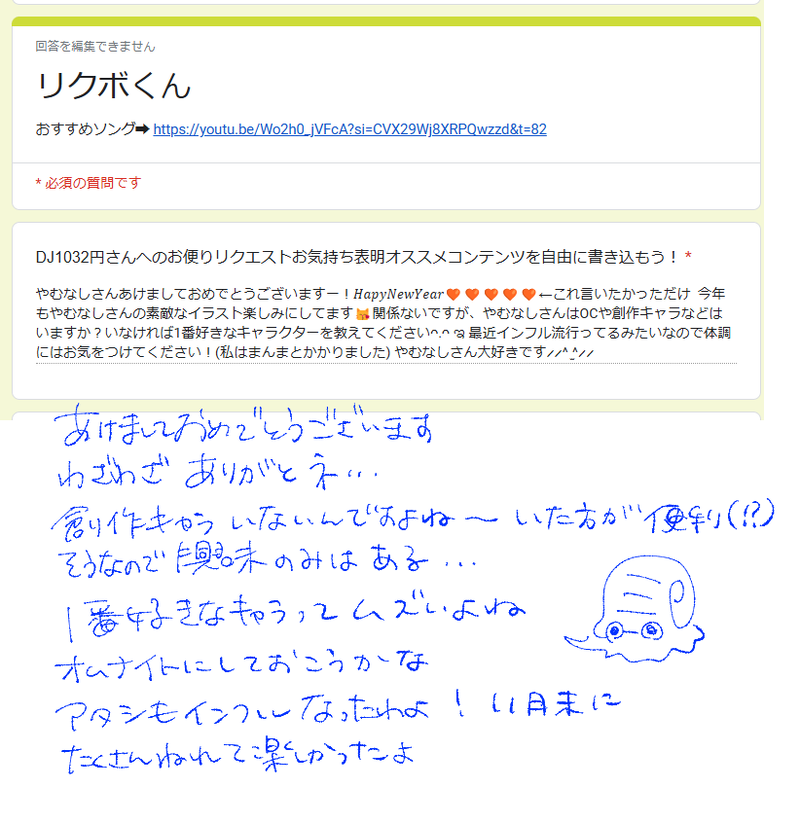 回答を編集できません
リクボくん
おすすめソング➡ https://youtu.be/Wo2h0_jVFcA?si=CVX29Wj8XRPQwzzd&t=82
* 必須の質問です
DJ1032円さんへのお便りリクエストお気持ち表明オススメコンテンツを自由に書き込もう！ *
やむなしさんあけましておめでとうございますー！𝐻𝑎𝑝𝑦𝑁𝑒𝑤𝑌𝑒𝑎𝑟🧡🧡🧡🧡🧡←これ言いたかっただけ 今年
もやむなしさんの素敵なイラスト楽しみにしてます😽関係ないですが、やむなしさんはOCや創作キャラなどは
いますか？いなければ1番好きなキャラクターを教えてくださいᴖ.ᴖ ઇ 最近インフル流行ってるみたいなので体調
にはお気をつけてください！(私はまんまとかかりました) やむなしさん大好きです⸝⸝^ ̫^⸝⸝
あけましておめでとうございます
わざわざ ありがとネ…
創作キャラ いないんですよね〜 いた方が便利(!?)
そうなので興味のみはある…
1番好きなキャラってムズいよね
オムナイトにしておこうかな
アタシもインフルなったわよ！ 11月末に
たくさんねれて楽しかったよ